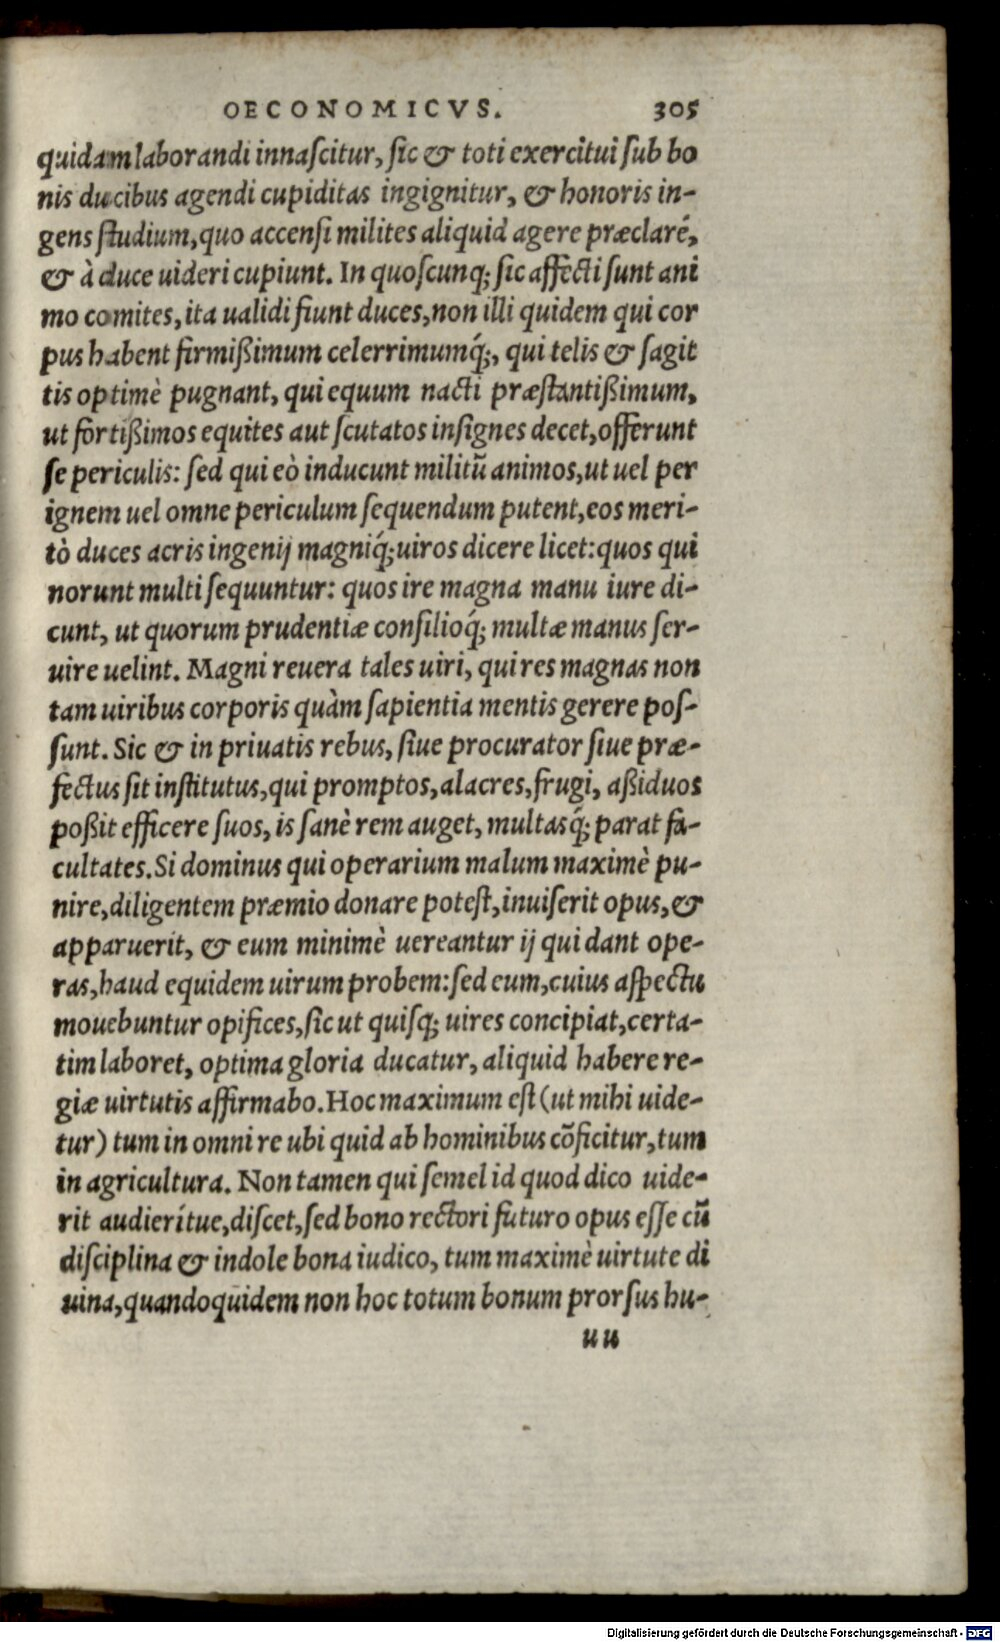 OECONOMICVS. 305
quidam laborandi innaſcitur, ſic & toti exercitui ſub bo
nis ducibus agendi cupiditas ingignitur, & honoris in-
gens ſtudium, quo accenſi milites aliquid agere præclaré,
& à duce uideri cupiunt. In quoſcunq; ſic affecti ſunt ani
mo comites, ita ualidi fiunt duces, non illi quidem qui cor
pus habent firmißimum celerrimumq́;, qui telis & ſagit
tis optimè pugnant, qui equum nacti præſtantißimum,
ut fortißimos equites aut ſcutatos inſignes decet, offerunt
ſe periculis: ſed qui eò inducunt militũ animos, ut uel per
ignem uel omne periculum ſequendum putent, eos meri-
tò duces acris ingenij magniq́; uiros dicere licet: quos qui
norunt multi ſequuntur: quos ire magna manu iure di-
cunt, ut quorum prudentiæ conſilioq́; multæ manus ſer-
uire uelint. Magni reuera tales uiri, qui res magnas non
tam uiribus corporis quàm ſapientia mentis gerere poſ-
ſunt. Sic & in priuatis rebus, ſiue procurator ſiue præ-
fectus ſit inſtitutus, qui promptos, alacres, frugi, aßiduos
poßit efficere ſuos, is ſanè rem auget, multasq́; parat fa-
cultates. Si dominus qui operarium malum maximè pu-
nire, diligentem præmio donare poteſt, inuiſerit opus, &
apparuerit, & eum minimè uereantur ij qui dant ope-
ras, haud equidem uirum probem: ſed eum, cuius aſpectu
mouebuntur opifices, ſic ut quiſq; uires concipiat, certa-
tim laboret, optima gloria ducatur, aliquid habere re-
giæ uirtutis affirmabo. Hoc maximum eſt (ut mihi uide-
tur) tum in omni re ubi quid ab hominibus cõficitur, tum
in agricultura. Non tamen qui ſemel id quod dico uide-
rit audierítue, diſcet, ſed bono rectori futuro opus eſſe cũ
diſciplina & indole bona iudico, tum maximè uirtute di
uina, quandoquidem non hoc totum bonum prorſus hu-
uu
Digitalisierung gefördert durch die Deutsche Forschungsgemeinschaft - DFG